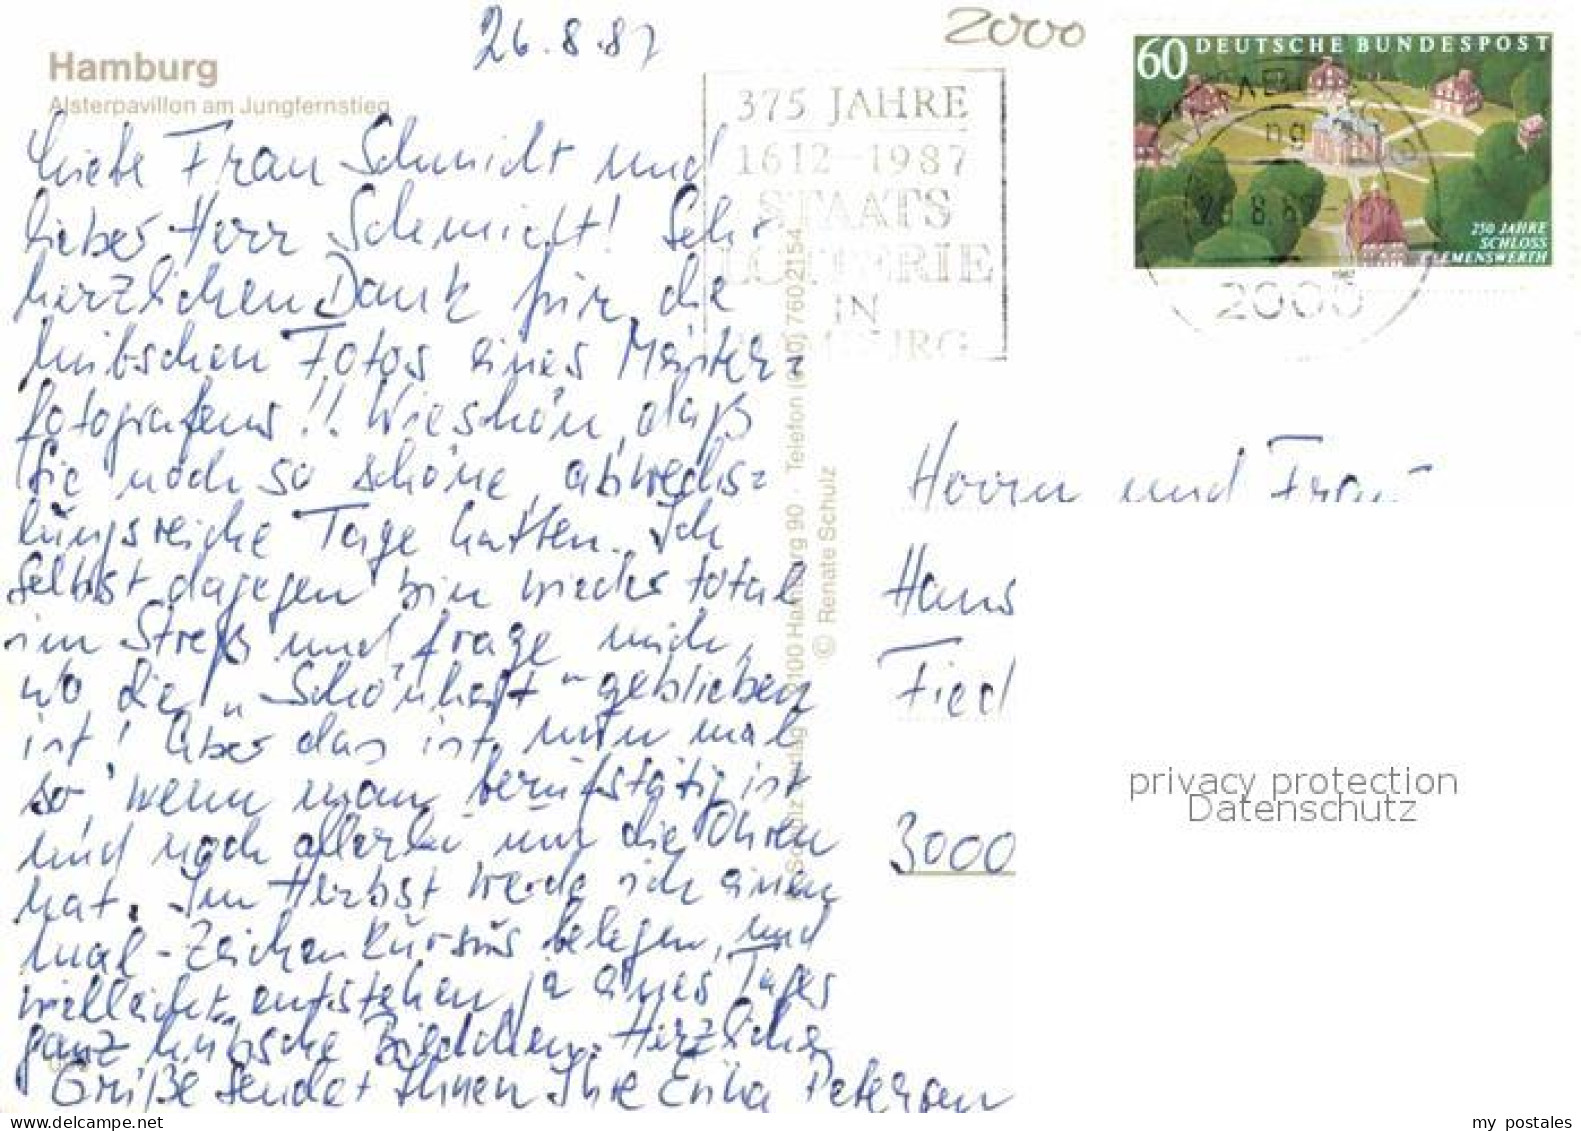 26.8.87
2000
Hamburg
Alsterpavillon am Jungfernstieg
Liebe Frau Schmidt und
lieber Herr Schmidt! Sehr
herzlichen Dank für die
hübschen Fotos eines Meister=
fotografens!! Wie schön, daß
Sie noch so schöne, abwechs=
lungsreiche Tage hatten. Ich
selbst dagegen bin wieder total
im Streß und frage mich,
wo die „Schönheit" geblieben
ist! Aber das ist nun mal
so, wenn man berufstätig ist
und noch allerlei um die Ohren
hat. Im Herbst werde ich einen
Mal-Zeichenkursus belegen, und
vielleicht entstehen ja eines Tages
ganz hübsche Bildchen. Herzliche
Grüße sendet Ihnen Ihre Erika Petersen
375 JAHRE
1612-1987
STAATS
LOTTERIE
IN
HAMBURG
60 DEUTSCHE BUNDESPOST
250 JAHRE
SCHLOSS
CLEMENSWERTH
1987
2000
Schulz Verlag 2100 Hamburg 90 · Telefon (040) 7602154
© Renate Schulz
Herrn und Frau
Hans
3000
privacy protection
Datenschutz
delcampe.net
my postales